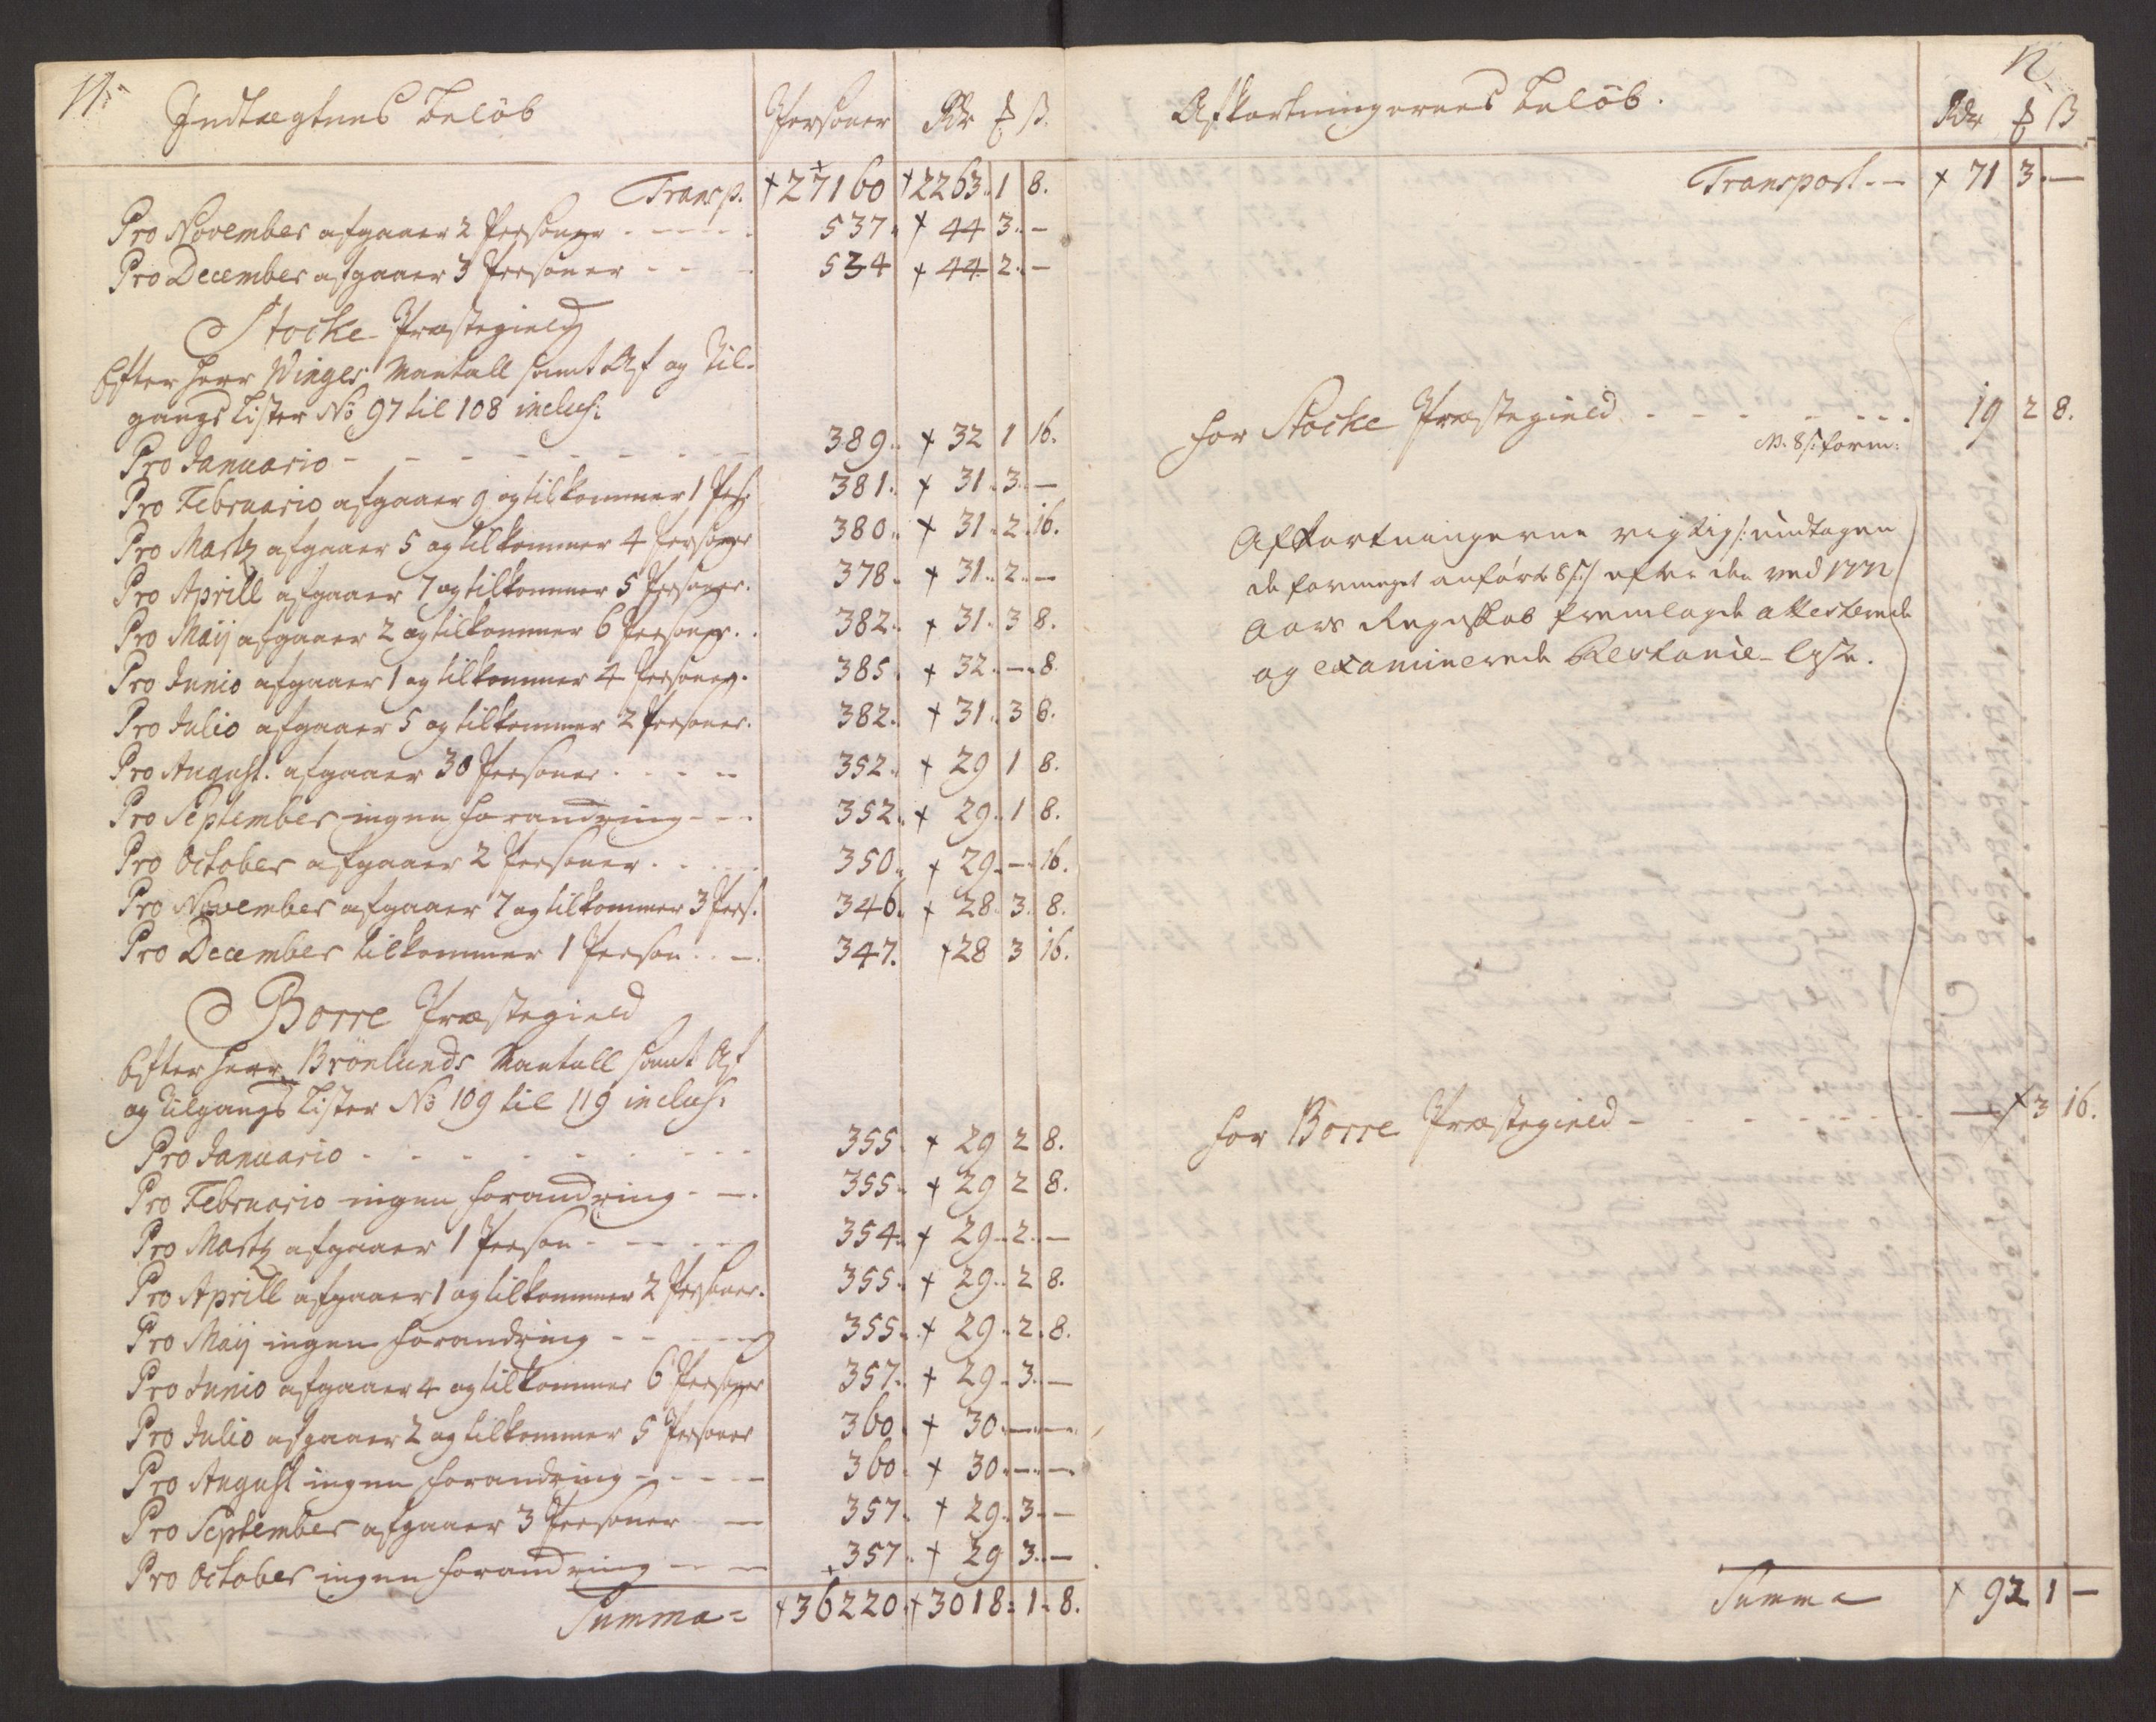 Indtægternes Beløb Personer Rdr ß
Transp. + 27160 + 2263 1 8.
Pro November afgaaer 2 Personer 537. + 44 3. –
Pro December afgaaer 3 Personer 534 + 44 2. –
Stocke Præstegield
Efter Herr Winges Mantall samt Af og Til-
gangs Lister No 97 til 108 inclus:
Pro Januario 389. + 32 1 16.
Pro Februario afgaaer 9 og tilkommer 1 Pers. 381. + 31. 3. –
Pro Martz afgaaer 5 og tilkommer 4 Personer 380. + 31. 2. 16.
Pro Aprill afgaaer 7 og tilkommer 5 Personer. 378. + 31. 2. –
Pro Maij afgaaer 2 og tilkommer 6 Personer. 382. + 31. 3 8.
Pro Junio afgaaer 1 og tilkommer 4 Personer. 385. + 32. – 8.
Pro Julio afgaaer 5 og tilkommer 2 Personer. 382. + 31. 3 8.
Pro August. afgaaer 30 Personer 352. + 29 1 8.
Pro September ingen Forandring 352. + 29. 1 8.
Pro October afgaaer 2 Personer 350. + 29. – 16.
Pro November afgaaer 7 og tilkommer 3 Pers. 346. + 28. 3. 8.
Pro December tilkommer 1 Person 347. + 28 3 16.
Borre Præstegield
Efter Herr Brönlunds Mantall samt Af
og Tilgangs Lister No 109 til 119 inclus:
Pro Januario 355. + 29 2 8.
Pro Februario ingen Forandring 355. + 29 2 8.
Pro Martz afgaaer 1 Person 354. + 29. 2. –
Pro Aprill afgaaer 1 og tilkommer 2 Personer. 355. + 29. 2 8.
Pro Maij ingen Forandring 355. + 29. 2. 8.
Pro Junio afgaaer 4 og tilkommer 6 Personer 357. + 29. 3. –
Pro Julio afgaaer 2 og tilkommer 5 Personer 360. + 30. – –
Pro August ingen Forandring 360. + 30. – –
Pro September afgaaer 3 Personer 357. + 29. 3. –
Pro October ingen Forandring 357. + 29 3. –
Summa = + 36220. + 3018 = 1 = 8.
Afkortningernes Beløb. Rdr ß
Transport + 71 3. –
For Stocke Præstegield 19 2 8.
Afkortningerne rigtig /: undtagen
de formeget anførte 8 ß :/ efter den ved 1772
Aars Regnskab fremlagde attesterede
og examinerede Restance-Liste.
For Borre Præstegield – + 3 16.
Summa + 92 1 –